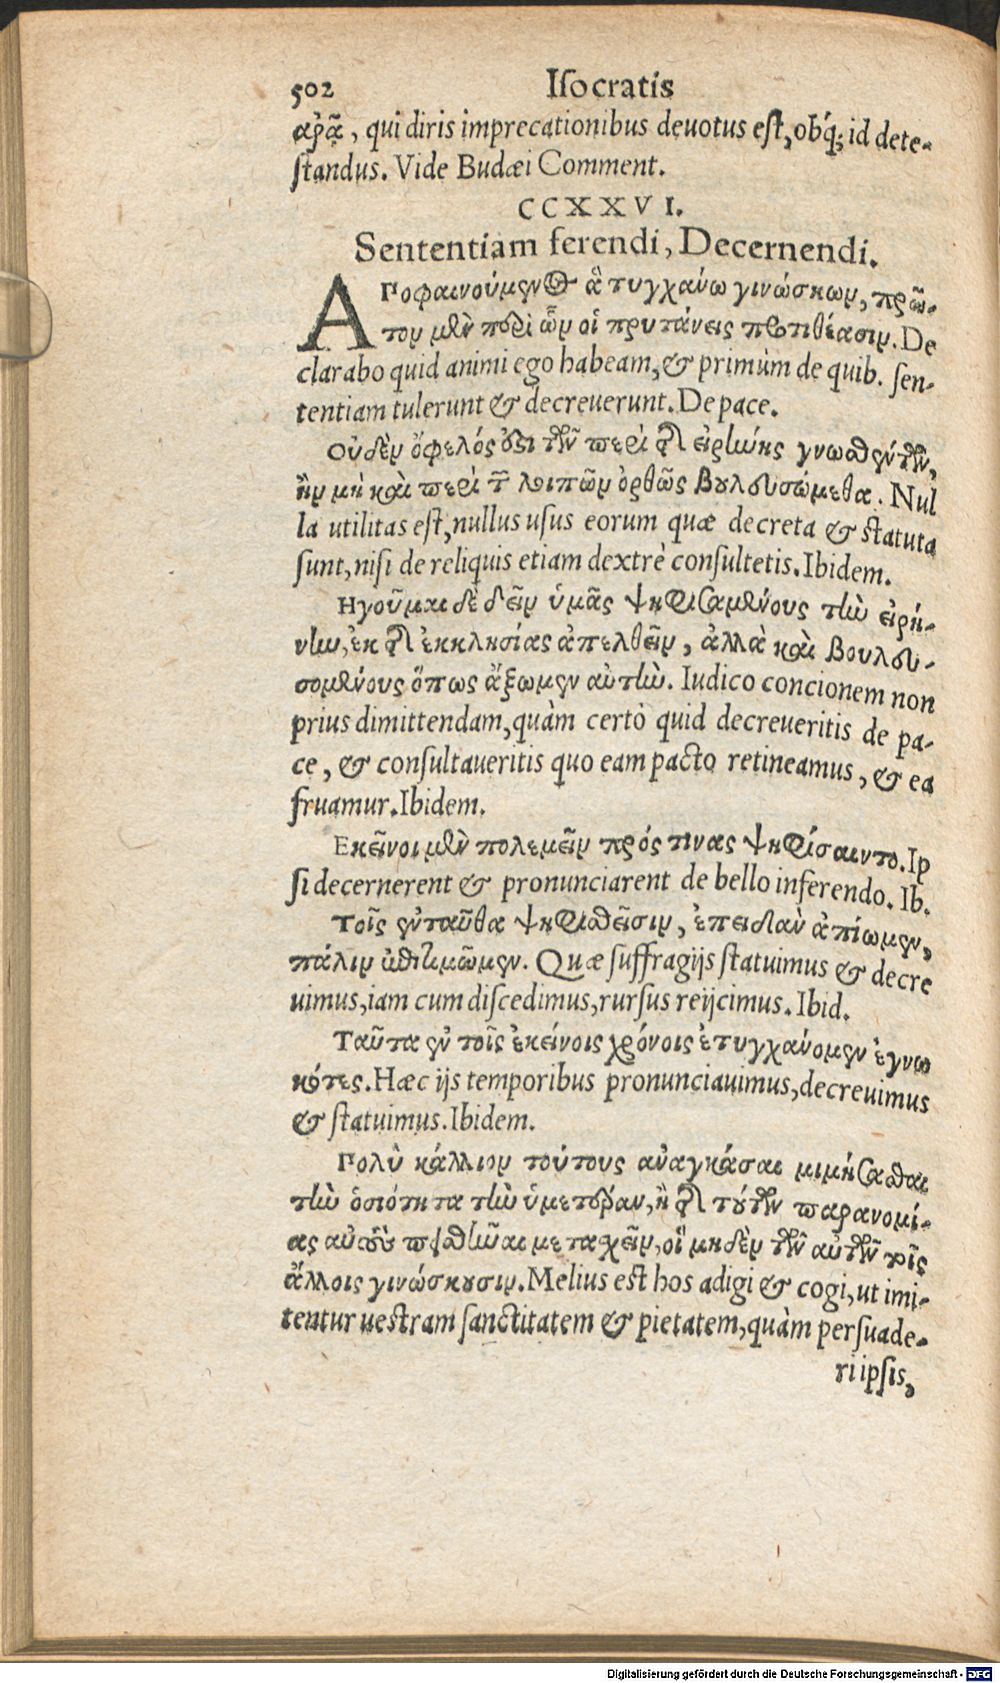 502 Isocratis
ἀρᾷ, qui diris imprecationibus deuotus est, obq́; id dete-
standus. Vide Budæi Comment.
CCXXVI.
Sententiam ferendi, Decernendi.
Αποφαινούμενος ἃ τυγχάνω γινώσκων, πρῶ-
τον μὲν περὶ ὧν οἱ πρυτάνεις προτιθέασιν. De
clarabo quid animi ego habeam, & primùm de quib. sen-
tentiam tulerunt & decreuerunt. De pace.
Οὐδὲν ὄφελός ἐστι τῶν περὶ τῆς εἰρήνης γνωσθέντων,
ἢν μὴ καὶ περὶ τῶν λοιπῶν ὀρθῶς βουλευσώμεθα. Nul
la utilitas est, nullus usus eorum quæ decreta & statuta
sunt, nisi de reliquis etiam dextrè consultetis. Ibidem.
Ηγοῦμαι δὲ δεῖν ὑμᾶς ψηφισαμένους τὴν εἰρή-
νην, ἐκ τῆς ἐκκλησίας ἀπελθεῖν, ἀλλὰ καὶ βουλευ-
σομένους ὅπως ἄξωμεν αὐτὴν. Iudico concionem non
prius dimittendam, quàm certò quid decreueritis de pa-
ce, & consultaueritis quo eam pacto retineamus, & ea
fruamur. Ibidem.
Εκεῖνοι μὲν πολεμεῖν πρός τινας ψηφίσαιντο. Ip
si decernerent & pronunciarent de bello inferendo. Ib.
Τοῖς ἐνταῦθα ψηφισθεῖσιν, ἐπειδὰν ἀπίωμεν,
πάλιν ἐπιτιμῶμεν. Quæ suffragijs statuimus & decre
uimus, iam cum discedimus, rursus reijcimus. Ibid.
Ταῦτα ἐν τοῖς ἐκείνοις χρόνοις ἐτυγχάνομεν ἐγνω
κότες. Hæc ijs temporibus pronunciauimus, decreuimus
& statuimus. Ibidem.
Πολὺ κάλλιον τούτους ἀναγκάσαι μιμήσασθαι
τὴν ὁσιότητα τὴν ὑμετέραν, ἢ τῆς τούτων παρανομί-
ας αὐτοὺς πεισθῆναι μετασχεῖν, οἳ μηδὲν τῶν αὐτῶν τοῖς
ἄλλοις γινώσκουσιν. Melius est hos adigi & cogi, ut imi-
tentur uestram sanctitatem & pietatem, quàm persuade-
ri ipsis,
Digitalisierung gefördert durch die Deutsche Forschungsgemeinschaft - DFG